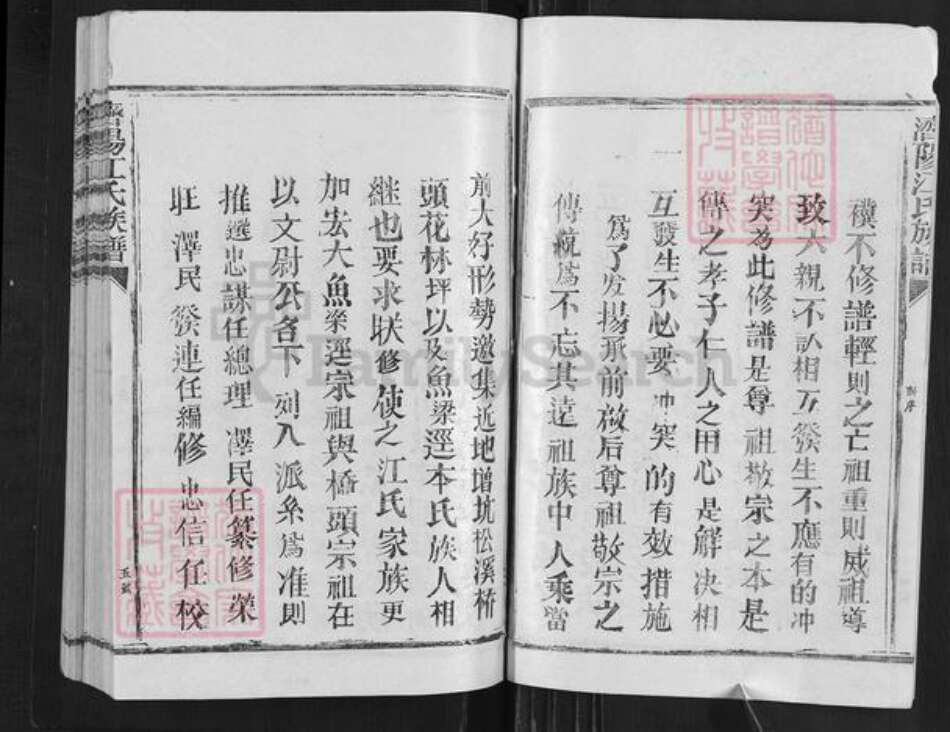 濟陽江氏族譜
新序
襆不修譜輕則之亡祖重則威祖導
致六親不認相互發生不應有的冲
突為此修譜是尊祖敬宗之本是
傳之孝子仁人之用心是解决相
互發生不必要冲突的有效措施
為了发揚承前啟后尊祖敬宗之
傳統為不忘其遠祖族中人乘當
前大好形勢邀集近地增坑松溪桥
頭花林坪以及魚梁逕本氏族人相
継也要求联修使之江氏家族更
加宏大魚梁逕宗祖與橋頭宗祖在
以文尉公名下列入派系為准則
推選忠謀任總理澤民任纂修榮
旺澤民發連任編修忠信任校
濟陽江氏族譜
FamilySearch